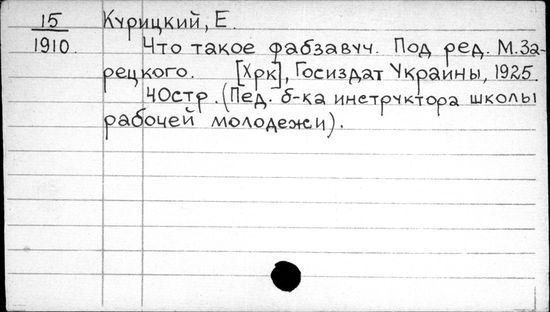 15 Курицкий, Е.
1910. Что такое фабзавуч. Под ред. М. За-
рецкого. [Хрк], Госиздат Украины, 1925.
40стр. (Пед. б-ка инструктора школы
рабочей молодежи).